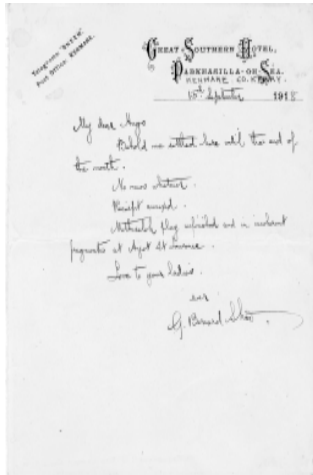 Telegrams "Hotel"
Post Office KENMARE.
GREAT SOUTHERN HOTEL,
PARKNASILLA-ON-SEA.
KENMARE CO. KERRY.
September 1918
My dear Hugo
Behold me settled here until the end of
the month.
No news whatever.
Receipt enclosed.
Methuselah play unfinished and in incoherent
fragments at Ayot St Lawrence.
Love to your ladies.
ever
G. Bernard Shaw